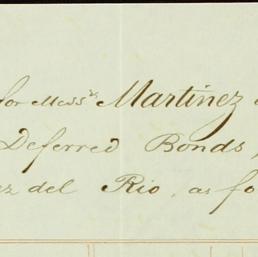 for Mess.rs Martinez
Deferred Bonds,
ez del Rio, as fo